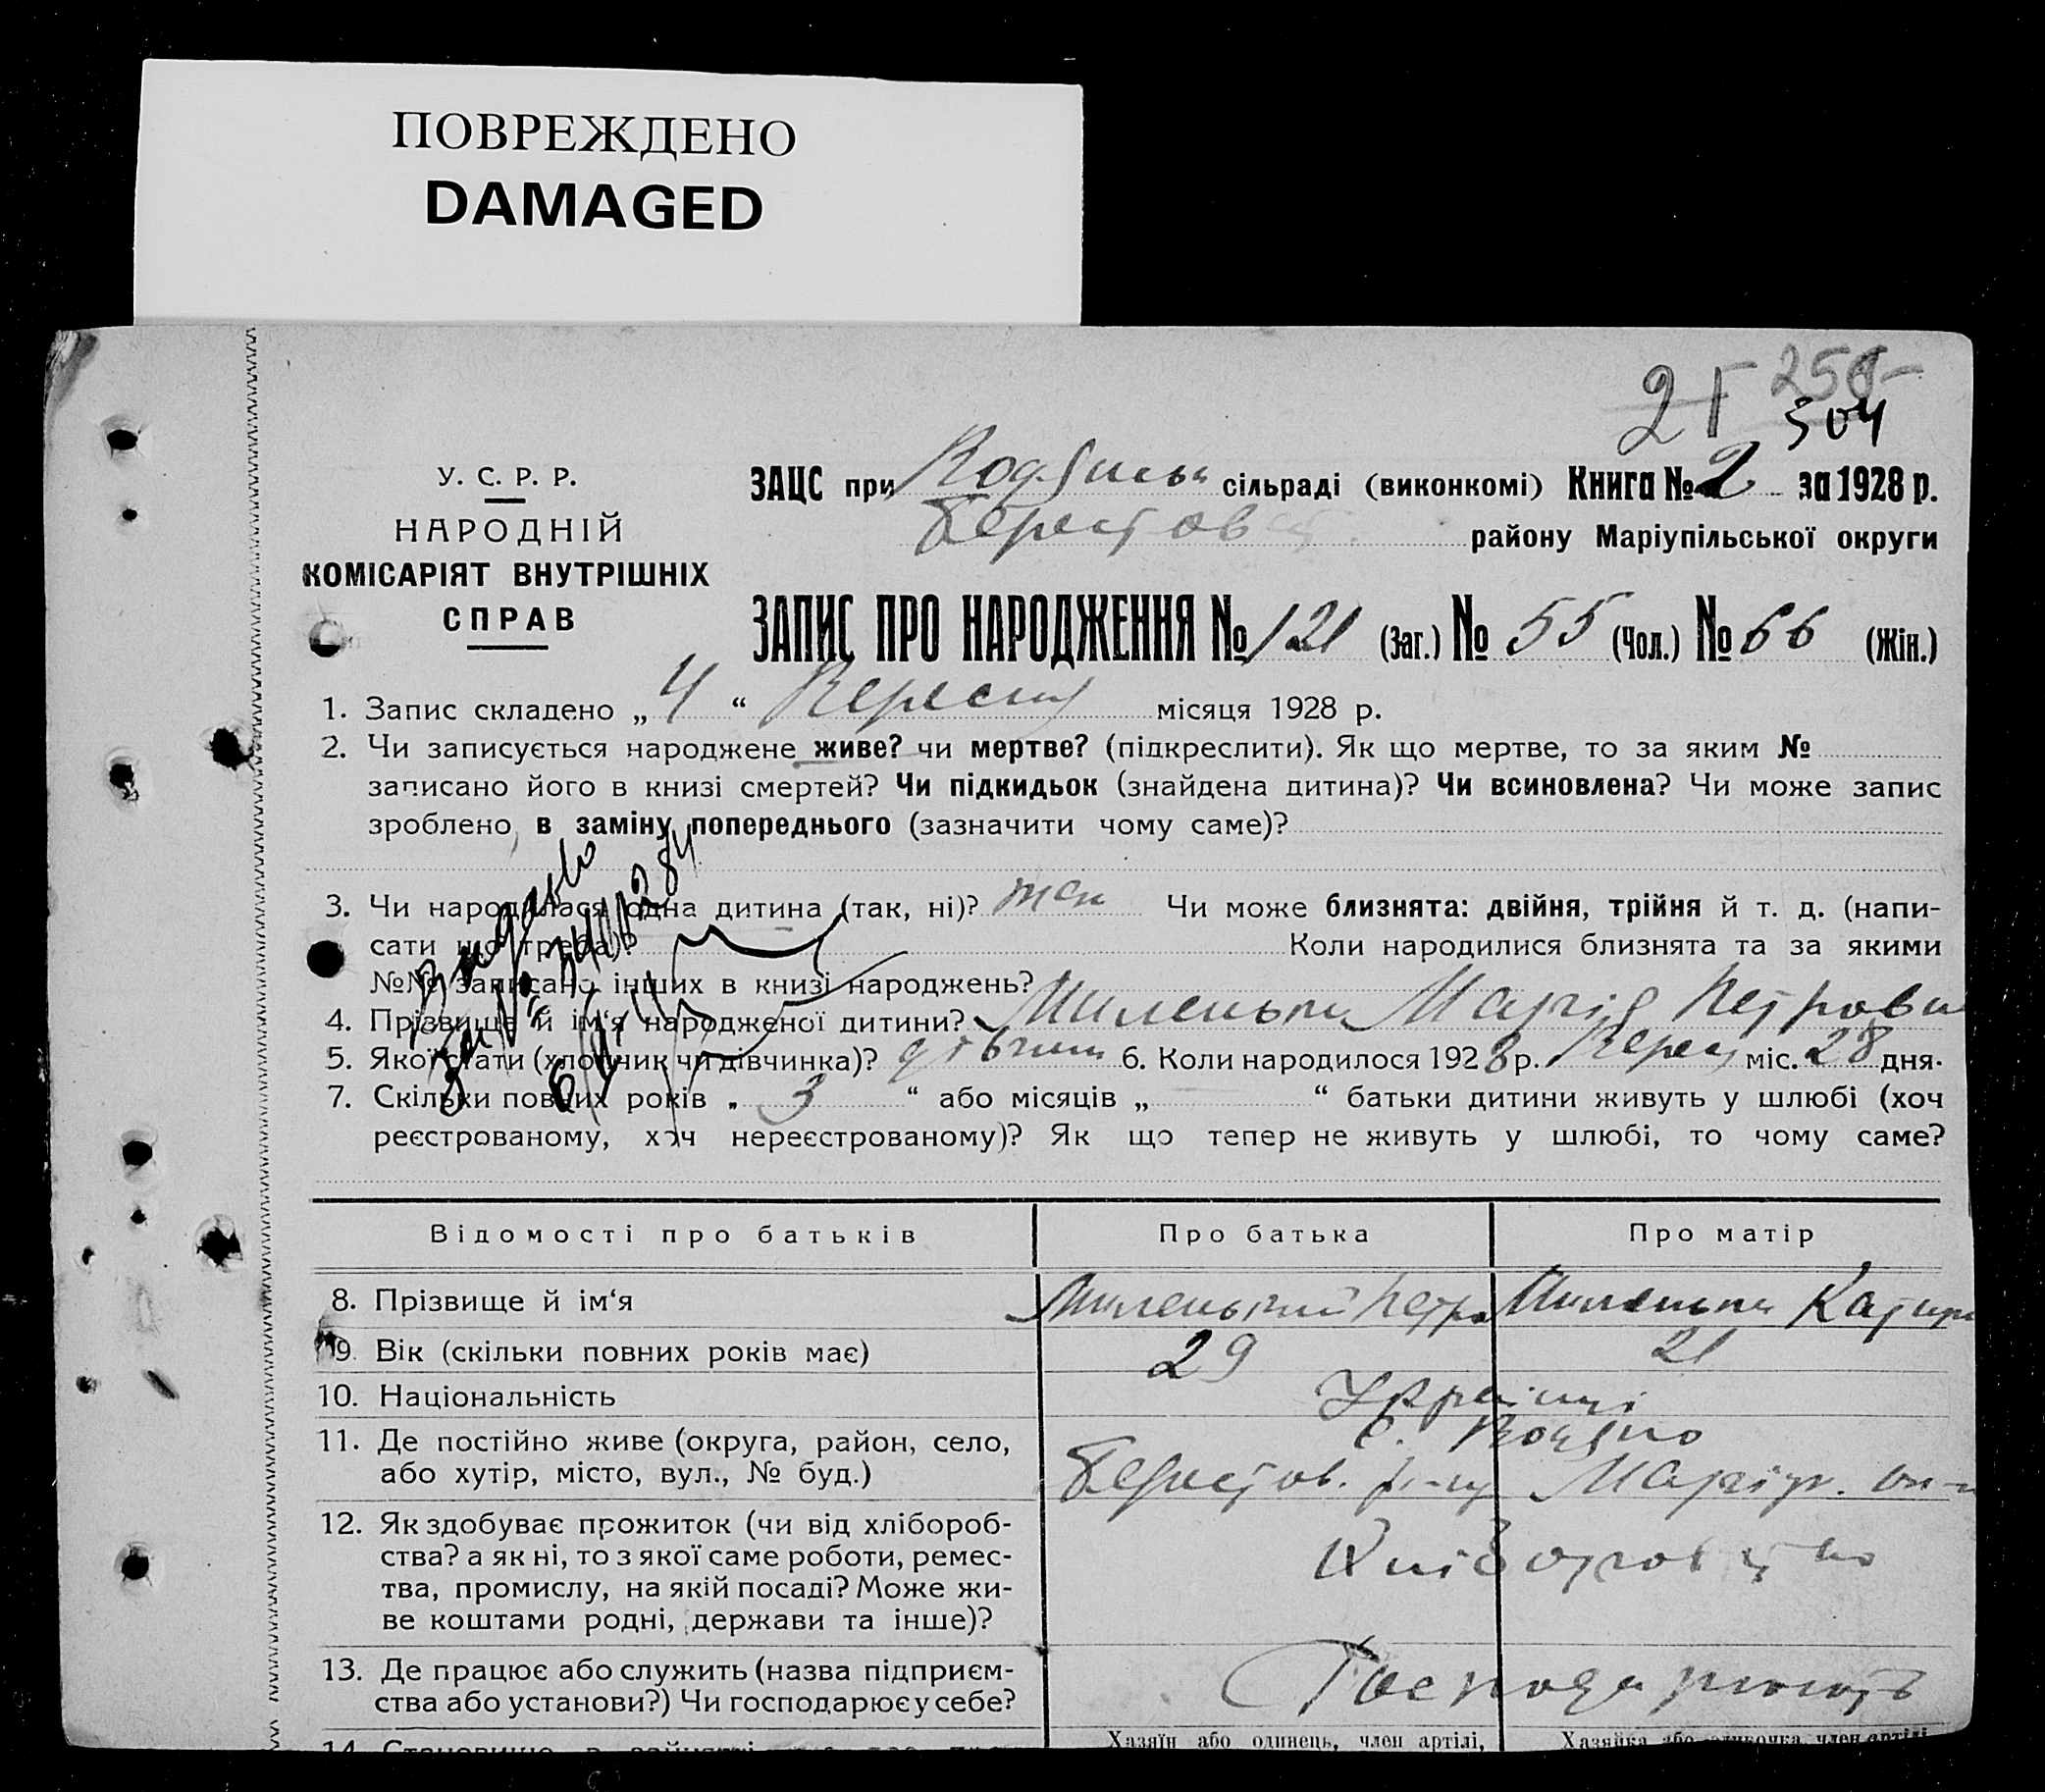 ПОВРЕЖДЕНО
DAMAGED
21 504
У. С. Р. Р.
НАРОДНІЙ
КОМІСАРІЯТ ВНУТРІШНІХ
СПРАВ
ЗАЦС при сільраді (виконкомі) Книга № 2 за 1928 р.
Берестов району Маріупільської округи
ЗАПИС ПРО НАРОДЖЕННЯ № 121 (Заг.) № 55 (Чол.) № 66 (Жін.)
1. Запис складено „ 4 “ Вересня місяця 1928 р.
2. Чи записується народжене живе? чи мертве? (підкреслити). Як що мертве, то за яким №
записано його в книзі смертей? Чи підкидьок (знайдена дитина)? Чи всиновлена? Чи може запис
зроблено в заміну попереднього (зазначити чому саме)?
3. Чи народилася одна дитина (так, ні)? Чи може близнята: двійня, трійня й т. д. (напи-
сати що треба). Коли народилися близнята та за якими
№№ записано інших в книзі народжень?
4. Прізвище й ім‘я народженої дитини? Миленька Марія Петровн
5. Якої стати (хлопчик чи дівчинка)? дівчина 6. Коли народилося 1928 р. Верес міс. 28 дня.
7. Скільки повних років „ 3 “ або місяців „ “ батьки дитини живуть у шлюбі (хоч
реєстрованому, хоч нереєстрованому)? Як що тепер не живуть у шлюбі, то чому саме?
Відомості про батьків Про батька Про матір
8. Прізвище й ім‘я Миленький Петро Миленька Катери
9. Вік (скільки повних років має) 29 21
10. Національність Українці
11. Де постійно живе (округа, район, село, с.
або хутір, місто, вул., № буд.) Берестов. р-ну Маріуп. ок-
12. Як здобуває прожиток (чи від хлібороб-
ства? а як ні, то з якої саме роботи, ремес-
тва, промислу, на якій посаді? Може жи-
ве коштами родні, держави та інше)? Хліборобство
13. Де працює або служить (назва підприєм-
ства або установи?) Чи господарює у себе? Господарюють
Хазяїн або одинець, член артілі, Хазяйка або одиночка, член артілі